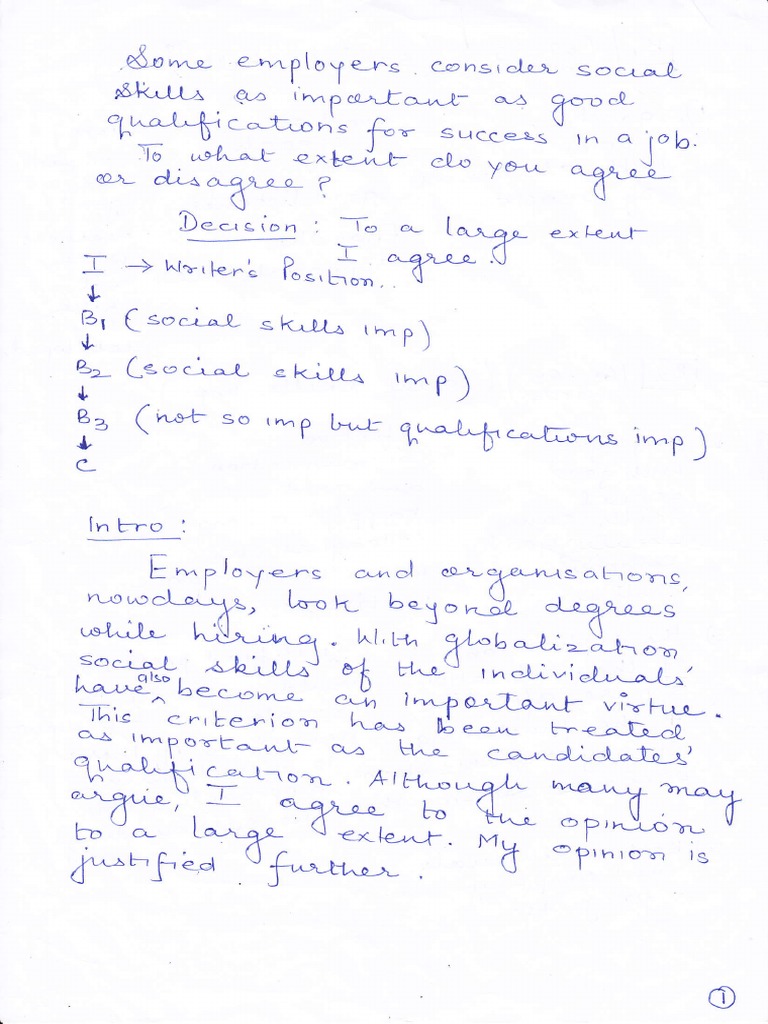 Some employers consider social
skills as important as good
qualifications for success in a job.
To what extent do you agree
or disagree?
Decision : To a large extent
I agree.
I → Writer's Position..
↓
B1 (social skills imp)
↓
B2 (social skills imp)
↓
B3 (not so imp but qualifications imp)
↓
C
Intro :
Employers and organisations,
nowdays, look beyond degrees
while hiring. With globalization
social skills of the individuals'
have also become an important virtue.
This criterion has been treated
as important as the candidates'
qualification. Although many may
argue, I agree to the opinion
to a large extent. My opinion is
justified further.
1